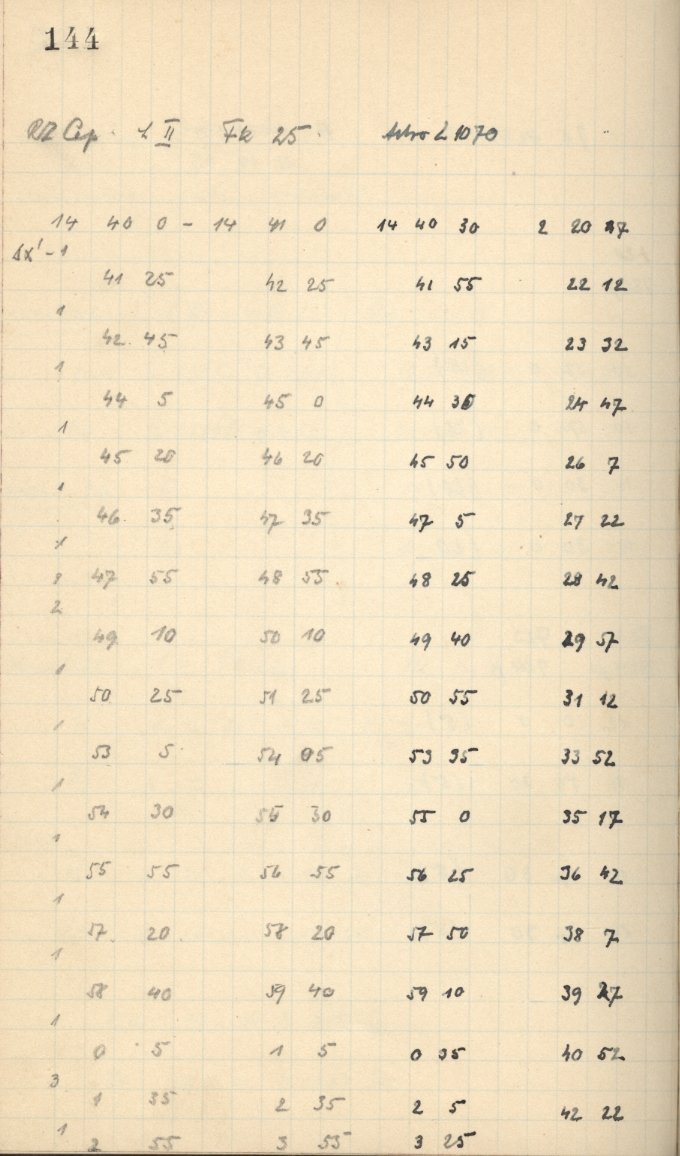 144
RZ Cep. L II Fk 25. Astro L 1070
14 40 0 - 14 41 0 14 40 30 2 20 47
Δx' - 1
41 25 42 25 41 55 22 12
1
42. 45 43 45 43 15 23 32
1
44 5 45 0 44 30 24 47
1
45 20 46 20 45 50 26 7
1
46. 35 47 35 47 5 27 22
47 55 48 55 48 25 28 42
2
49 10 50 10 49 40 29 57
1
50 25 51 25 50 55 31 12
1
53 5 54 05 53 35 33 52
1
54 30 55 30 55 0 35 17
1
55 55 56 55 56 25 36 42
1
57. 20 58 20 57 50 38 7
1
58 40 59 40 59 10 39 27
1
0 5 1 5 0 35 40 52
3
1 35 2 35 2 5 42 22
1
2 55 3 55 3 25